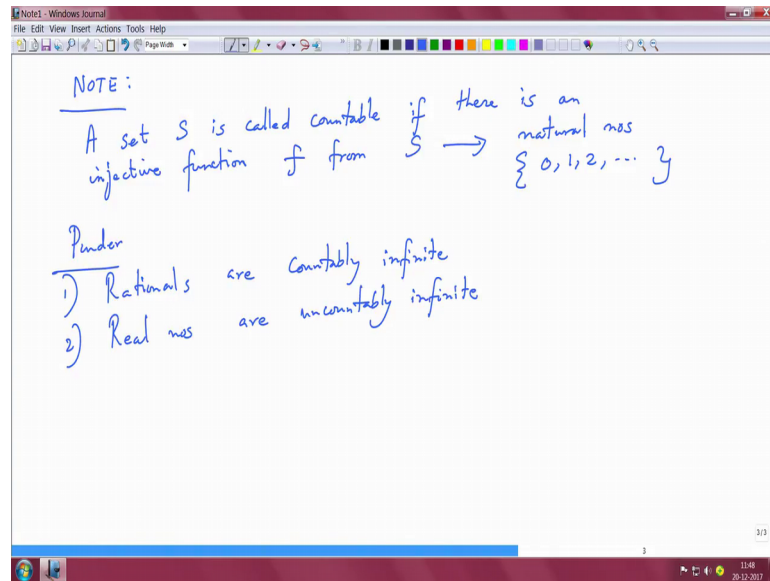 Note1 - Windows Journal
File Edit View Insert Actions Tools Help
Page Width
NOTE:
A set S is called countable if there is an
injective function f from S → natural nos
{ 0, 1, 2, ... }
Ponder
1) Rationals are countably infinite
2) Real nos are uncountably infinite
3/3
3
11:48
20-12-2017